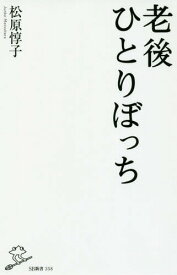 老後
ひとりぼっち
松原惇子
Junko Matsubara
SB新書 358